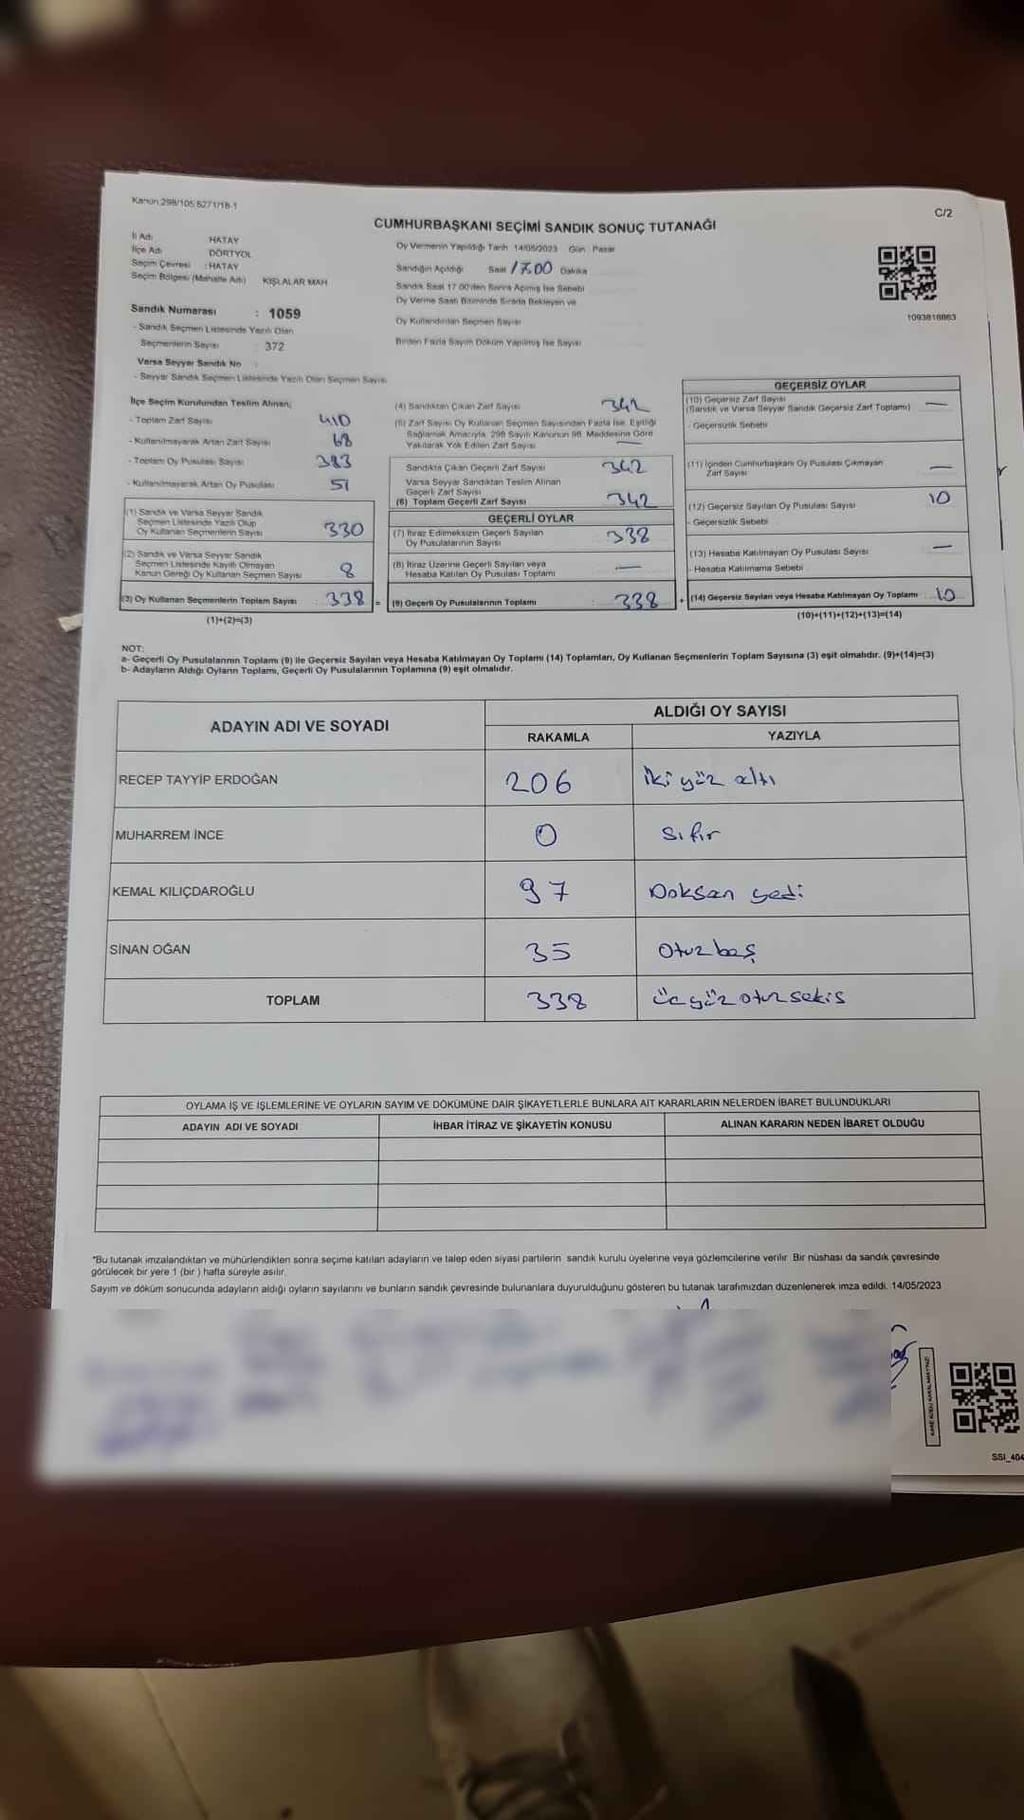 Kanun:298/105,6271/18-1
C/2
CUMHURBAŞKANI SEÇİMİ SANDIK SONUÇ TUTANAĞI
İl Adı : HATAY
İlçe Adı : DÖRTYOL
Seçim Çevresi : HATAY
Seçim Bölgesi (Mahalle Adı) KIŞLALAR MAH
Sandık Numarası : 1059
- Sandık Seçmen Listesinde Yazılı Olan
Seçmenlerin Sayısı : 372
Varsa Seyyar Sandık No :
- Seyyar Sandık Seçmen Listesinde Yazılı Olan Seçmen Sayısı
Oy Vermenin Yapıldığı Tarih 14/05/2023 Gün : Pazar
Sandığın Açıldığı Saat 17.00 Dakika
Sandık Saat 17.00'den Sonra Açılmış İse Sebebi
Oy Verme Saati Bitiminde Sırada Bekleyen ve
Oy Kullandırılan Seçmen Sayısı
Birden Fazla Sayım Döküm Yapılmış İse Sayısı
1093818863
İlçe Seçim Kurulundan Teslim Alınan;
- Toplam Zarf Sayısı 410
- Kullanılmayarak Artan Zarf Sayısı 68
- Toplam Oy Pusulası Sayısı 393
- Kullanılmayarak Artan Oy Pusulası 51
(1) Sandık ve Varsa Seyyar Sandık
Seçmen Listesinde Yazılı Olup
Oy Kullanan Seçmenlerin Sayısı 330
(2) Sandık ve Varsa Seyyar Sandık
Seçmen Listesinde Kayıtlı Olmayan
Kanun Gereği Oy Kullanan Seçmen Sayısı 8
(3) Oy Kullanan Seçmenlerin Toplam Sayısı : 338 =
(1)+(2)=(3)
(4) Sandıktan Çıkan Zarf Sayısı 342
(5) Zarf Sayısı Oy Kullanan Seçmen Sayısından Fazla İse, Eşitliği
Sağlamak Amacıyla, 298 Sayılı Kanunun 98. Maddesine Göre
Yakılarak Yok Edilen Zarf Sayısı —
Sandıkta Çıkan Geçerli Zarf Sayısı 342
Varsa Seyyar Sandıktan Teslim Alınan
Geçerli Zarf Sayısı
(6) Toplam Geçerli Zarf Sayısı 342
GEÇERLİ OYLAR
(7) İtiraz Edilmeksizin Geçerli Sayılan
Oy Pusulalarının Sayısı 338
(8) İtiraz Üzerine Geçerli Sayılan veya
Hesaba Katılan Oy Pusulası Toplamı —
(9) Geçerli Oy Pusulalarının Toplamı : 338 +
GEÇERSİZ OYLAR
(10) Geçersiz Zarf Sayısı —
(Sandık ve Varsa Seyyar Sandık Geçersiz Zarf Toplamı)
- Geçersizlik Sebebi
(11) İçinden Cumhurbaşkanı Oy Pusulası Çıkmayan
Zarf Sayısı —
(12) Geçersiz Sayılan Oy Pusulası Sayısı 10
- Geçersizlik Sebebi
(13) Hesaba Katılmayan Oy Pusulası Sayısı —
- Hesaba Katılmama Sebebi
(14) Geçersiz Sayılan veya Hesaba Katılmayan Oy Toplamı : 10
(10)+(11)+(12)+(13)=(14)
NOT:
a- Geçerli Oy Pusulalarının Toplamı (9) ile Geçersiz Sayılan veya Hesaba Katılmayan Oy Toplamı (14) Toplamları, Oy Kullanan Seçmenlerin Toplam Sayısına (3) eşit olmalıdır. (9)+(14)=(3)
b- Adayların Aldığı Oyların Toplamı, Geçerli Oy Pusulalarının Toplamına (9) eşit olmalıdır.
ADAYIN ADI VE SOYADI
ALDIĞI OY SAYISI
RAKAMLA YAZIYLA
RECEP TAYYİP ERDOĞAN 206 iki yüz altı
MUHARREM İNCE 0 Sıfır
KEMAL KILIÇDAROĞLU 97 Doksan yedi
SİNAN OĞAN 35 Otuz beş
TOPLAM 338 üç yüz otuz sekis
OYLAMA İŞ VE İŞLEMLERİNE VE OYLARIN SAYIM VE DÖKÜMÜNE DAİR ŞİKAYETLERLE BUNLARA AİT KARARLARIN NELERDEN İBARET BULUNDUKLARI
ADAYIN ADI VE SOYADI İHBAR İTİRAZ VE ŞİKAYETİN KONUSU ALINAN KARARIN NEDEN İBARET OLDUĞU
*Bu tutanak imzalandıktan ve mühürlendikten sonra seçime katılan adayların ve talep eden siyasi partilerin sandık kurulu üyelerine veya gözlemcilerine verilir. Bir nüshası da sandık çevresinde
görülecek bir yere 1 (bir ) hafta süreyle asılır.
Sayım ve döküm sonucunda adayların aldığı oyların sayılarını ve bunların sandık çevresinde bulunanlara duyurulduğunu gösteren bu tutanak tarafımızdan düzenlenerek imza edildi. 14/05/2023
SSI_404